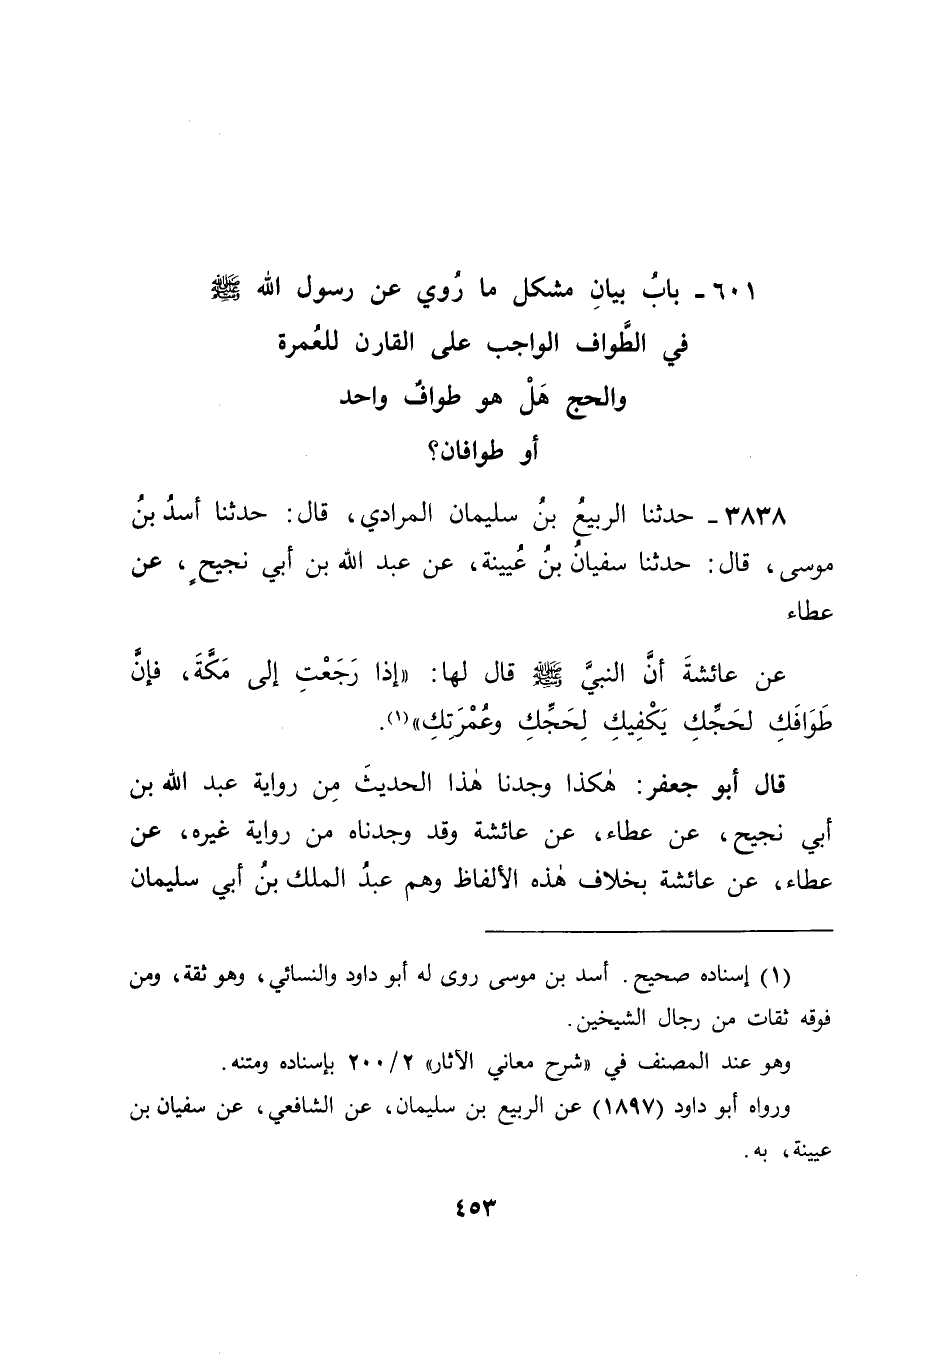 ٦٠١ - بابُ بيانِ مشكل ما رُوي عن رسول الله ﷺ
في الطَّواف الواجب على القارن للعُمرة
والحج هَلْ هو طوافٌ واحد
أو طوافان؟
٣٨٣٨ - حدثنا الربيعُ بنُ سليمان المرادي، قال: حدثنا أسدُ بنُ
موسى، قال: حدثنا سفيانُ بنُ عُيينة، عن عبد الله بن أبي نجيحٍ، عن
عطاء
عن عائشةَ أنَّ النبيَّ ﷺ قال لها: «إذا رَجَعْتِ إلى مَكَّةَ، فإنَّ
طَوَافَكِ لحَجِّكِ يَكْفِيكِ لِحَجِّكِ وعُمْرَتِكِ»(١).
قال أبو جعفر: هٰكذا وجدنا هٰذا الحديثَ مِن رواية عبد الله بن
أبي نجيح، عن عطاء، عن عائشة وقد وجدناه من رواية غيره، عن
عطاء، عن عائشة بخلاف هٰذه الألفاظ وهم عبدُ الملك بنُ أبي سليمان
(١) إسناده صحيح. أسد بن موسى روى له أبو داود والنسائي، وهو ثقة، ومن
فوقه ثقات من رجال الشيخين.
وهو عند المصنف في «شرح معاني الآثار» ٢٠٠/٢ بإسناده ومتنه.
ورواه أبو داود (١٨٩٧) عن الربيع بن سليمان، عن الشافعي، عن سفيان بن
عيينة، به.
٤٥٣